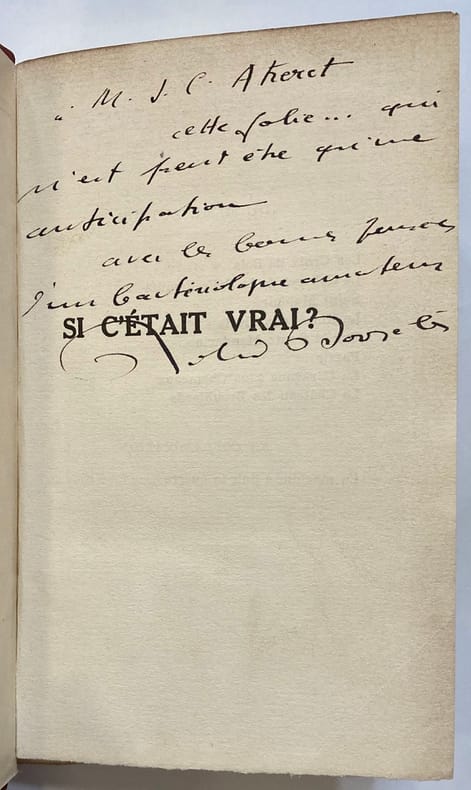 à M. J. C. Aheret
cette folie... qui
n'est peut être qu'une
anticipation
avec les bonnes pensées
d'un bactériologue amateur
SI C'ÉTAIT VRAI?
Roland Dorgelès